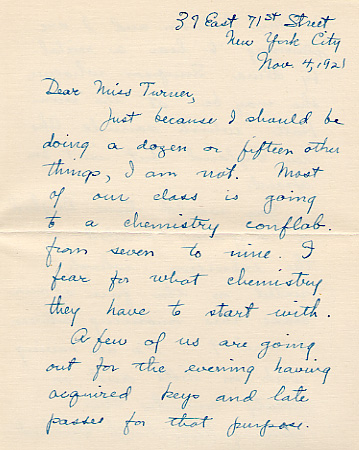 39 East 71st Street
New York City
Nov. 4, 1921
Dear Miss Turner,
Just because I should be
doing a dozen or fifteen other
things, I am not. Most
of our class is going
to a chemistry conflab.
from seven to nine. I
fear for what chemistry
they have to start with.
A few of us are going
out for the evening having
acquired keys and late
passes for that purpose.